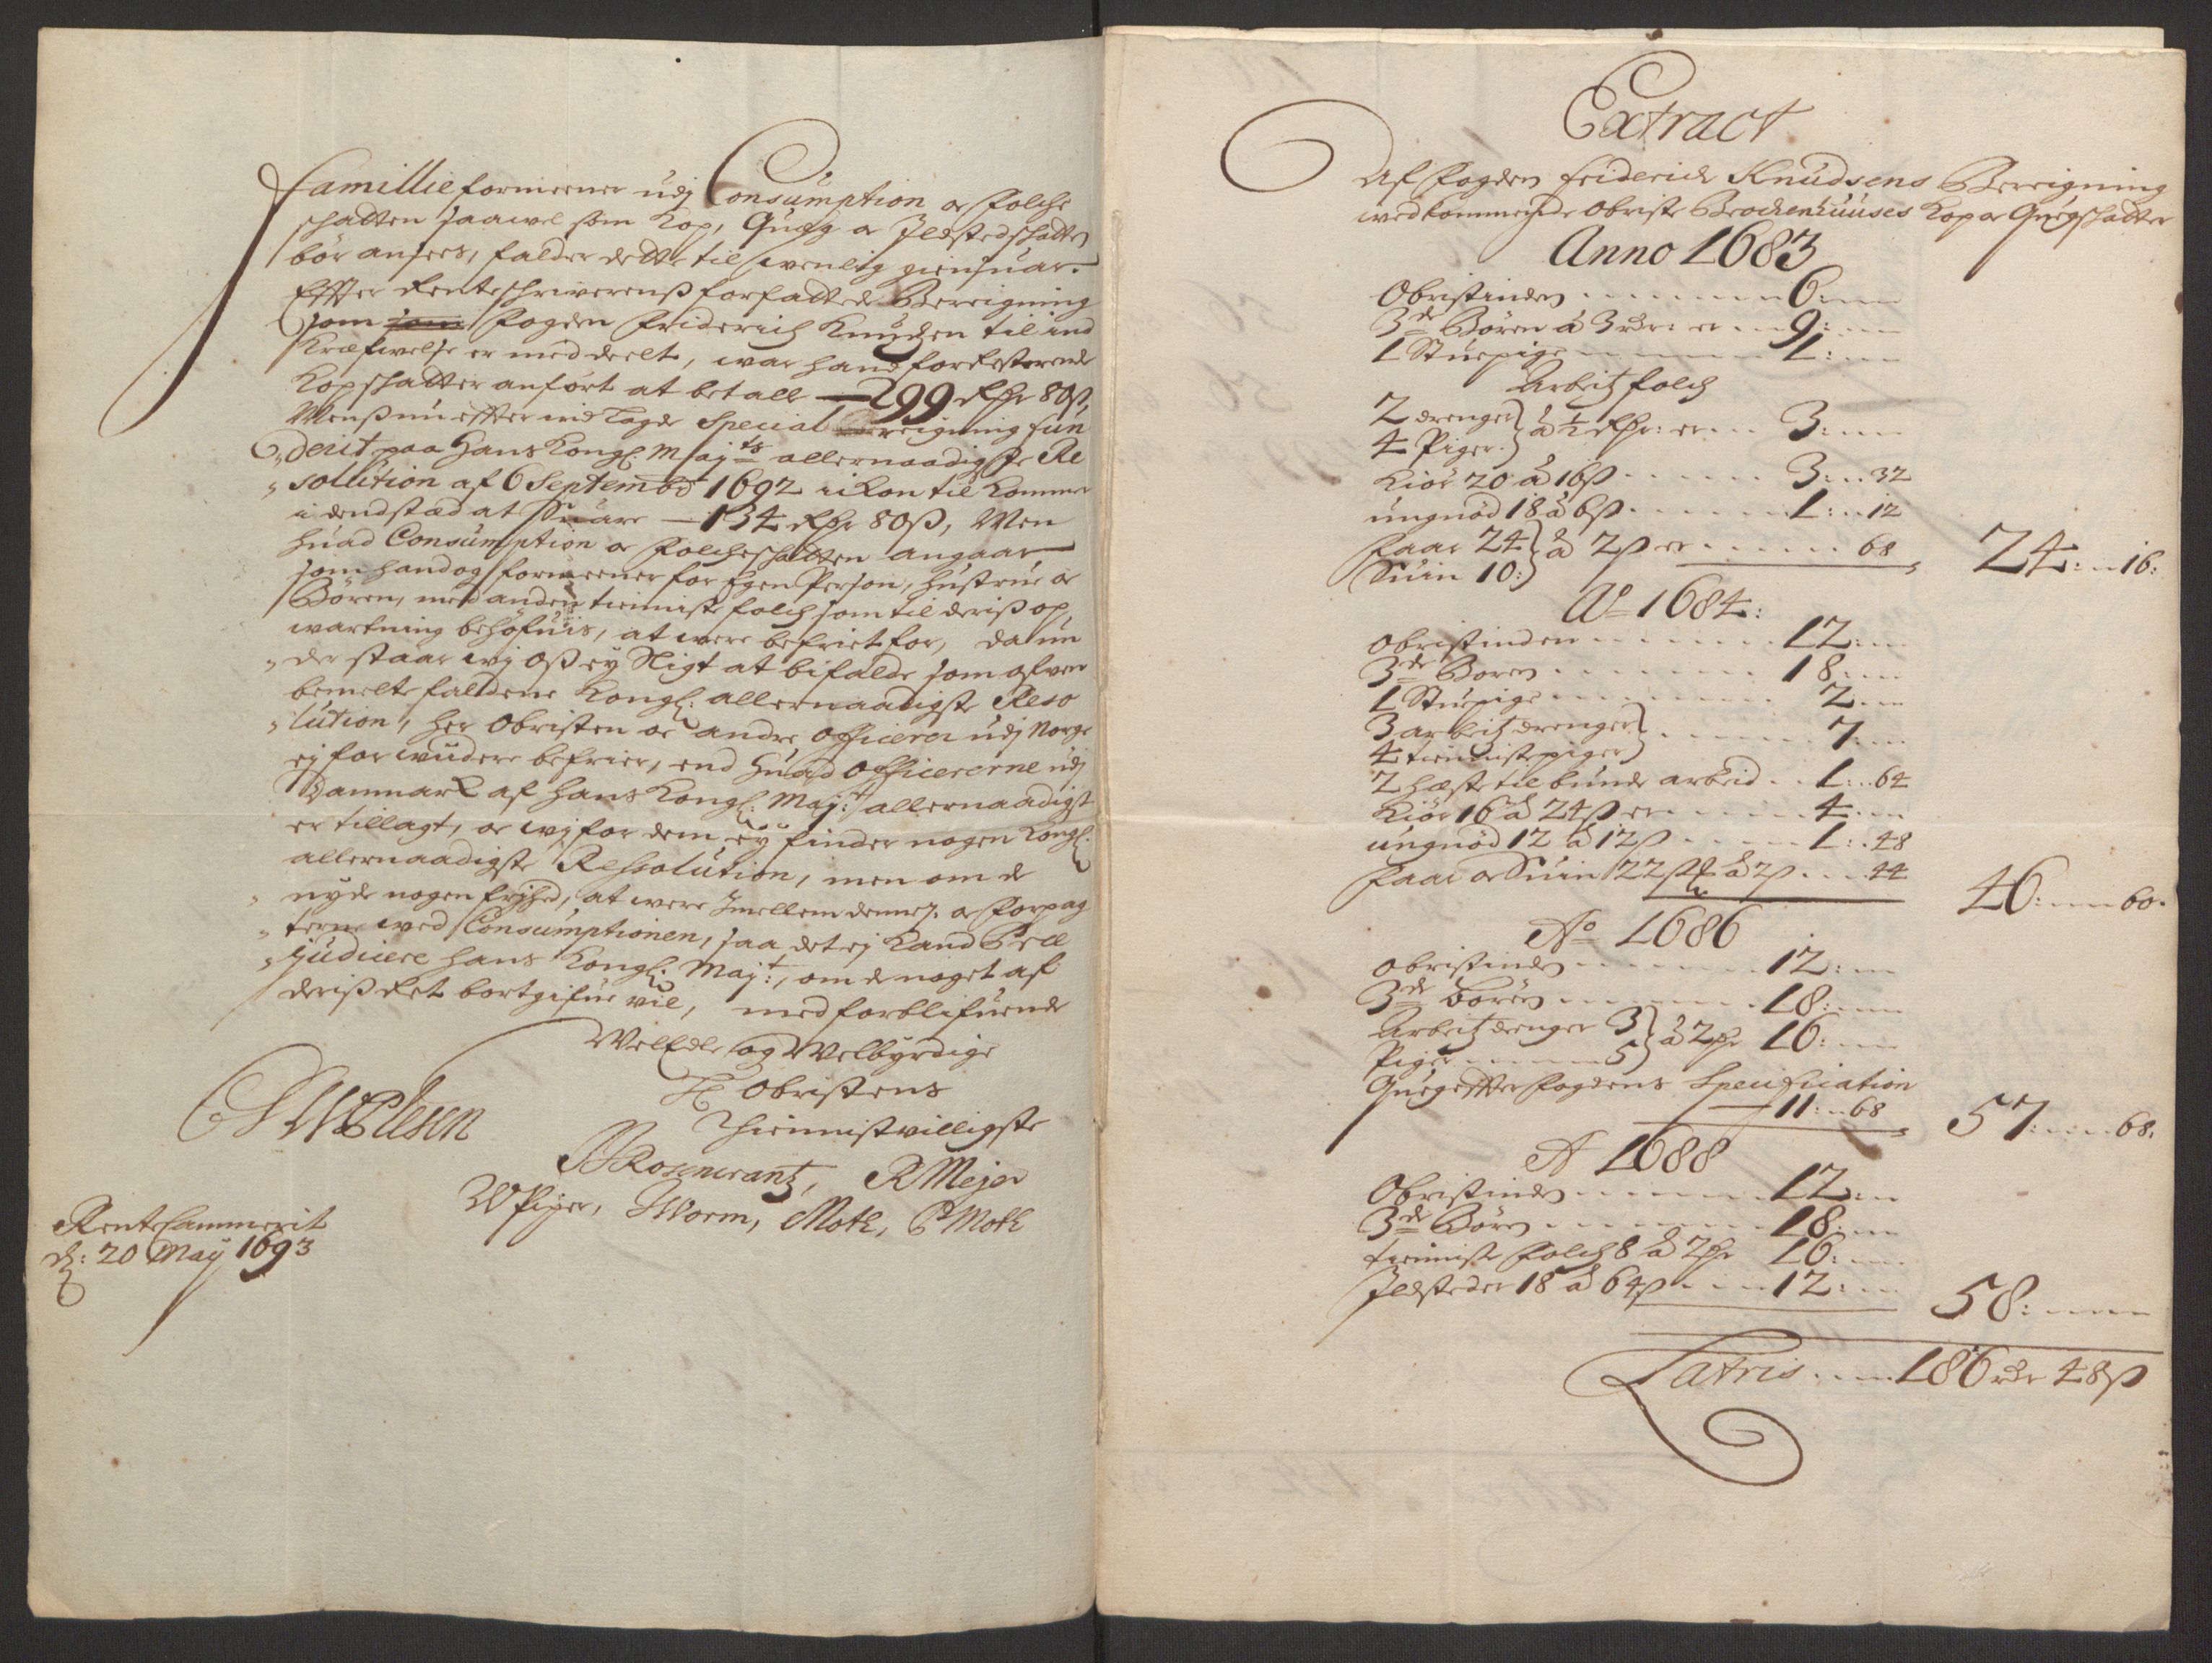 Familliet formeener udj Consumption oc Folche
schatten saawel som Kop, Quæg oc Ildstedschatten
bör ansees, falder dette til wenlig giensuar.
Effter Renteschriwerenß forfattede Bereigning
som Fogden Friderich Knudzen til ind
Kræfwelse er meddeelt, war hand for Resterende
Kopschatter anført at betalle — 299 Rdr 80 ß,
Menß nu effter indtagde Special Bereigning fun
derit paa Hans Kongl: Maj:ts allernaadigste Re
sollution af 6 Septembr 1692 ickon til kommer
i dend stæd at Suare — 134 Rdr 80 ß, Men
huad Consumption oc Folcheschatten angaar
som hand og formeener for Egen Person, Hustrue oc
Börn, med anden tieniste folch som til deriß op
wartning behöfuis, at were befriet for, da un
der staar wj oß ey Sligt at bifalde som ofwen
bemelte faldene Kongl: allernaadigste Reso
lution, her Obristen oc andre Officerer udj Norge
ej for widere befrier, end huad Officererne udj
Danmark af Hans Kongl: Maj:t allernaadigst
er tillagt, oc wj for dem ey finder nogen Kongl:
allernaadigste Ressolution, men om de
nyde nogen frjhed, at were Imellem dennem oc Forpag
teren wed Consumptionen, saa det ej kand Præ
judicere Hans Kongl: Maj:t, om de noget af
deriß Ret bortgifue vil, med forblifuende
WelEdle og Welbyrdige
Hr Obristens
Thienistvilligste
CS WPlesen
Rosencrantz, R Mejer
W Piper, Worm, Moth, P Moth
RenteCammerit
d: 20 Maÿ 1693
Extract
Af Fogden Friderich Knudsens Bereigning
wedkommende Obriste Brochenhuuses Kop oc Quegschatter
Anno 1683
Obristinden 6:
3de Börn á 3 rdr: er 9:
1 Stuepige 1:
Arbeitzfolch
2 drenger
4 Piger } á ½ Rdr: er 3:
Kiör 20 á 16 ß 3: 32
ungnöd 18 á 6 ß 1: 12
Faar 24
Suin 10: } á 2 ß er 68 24: 16:
Ao 1684:
Obristinden 12:
3de Boren 18:
1 Stuepige 2:
3 arbeitzdrenger
4 tienistepiger } 7:
2 hæste til bunde arbeid 1: 64
Kiör 16 á 24 ß er 4:
ungnöd 12 á 12 ß 1: 48
Faar oc Suin 22 st á 2 ß 44 46: 60.
Ao 1686
Obristinden 12:
3de Börn 18:
Arbeitzdrenger 3
Piger 5 } á 2 Rdr 16:
Queg effter Fogdens Specification
11: 68 57: 68.
A 1688
Obristinden 12:
3de Börn 18:
tieniste Folch 8 á 2 Rdr 16:
Ildsteder 18 á 64 ß 12: 58:
Latris 186 rdr 48 ß